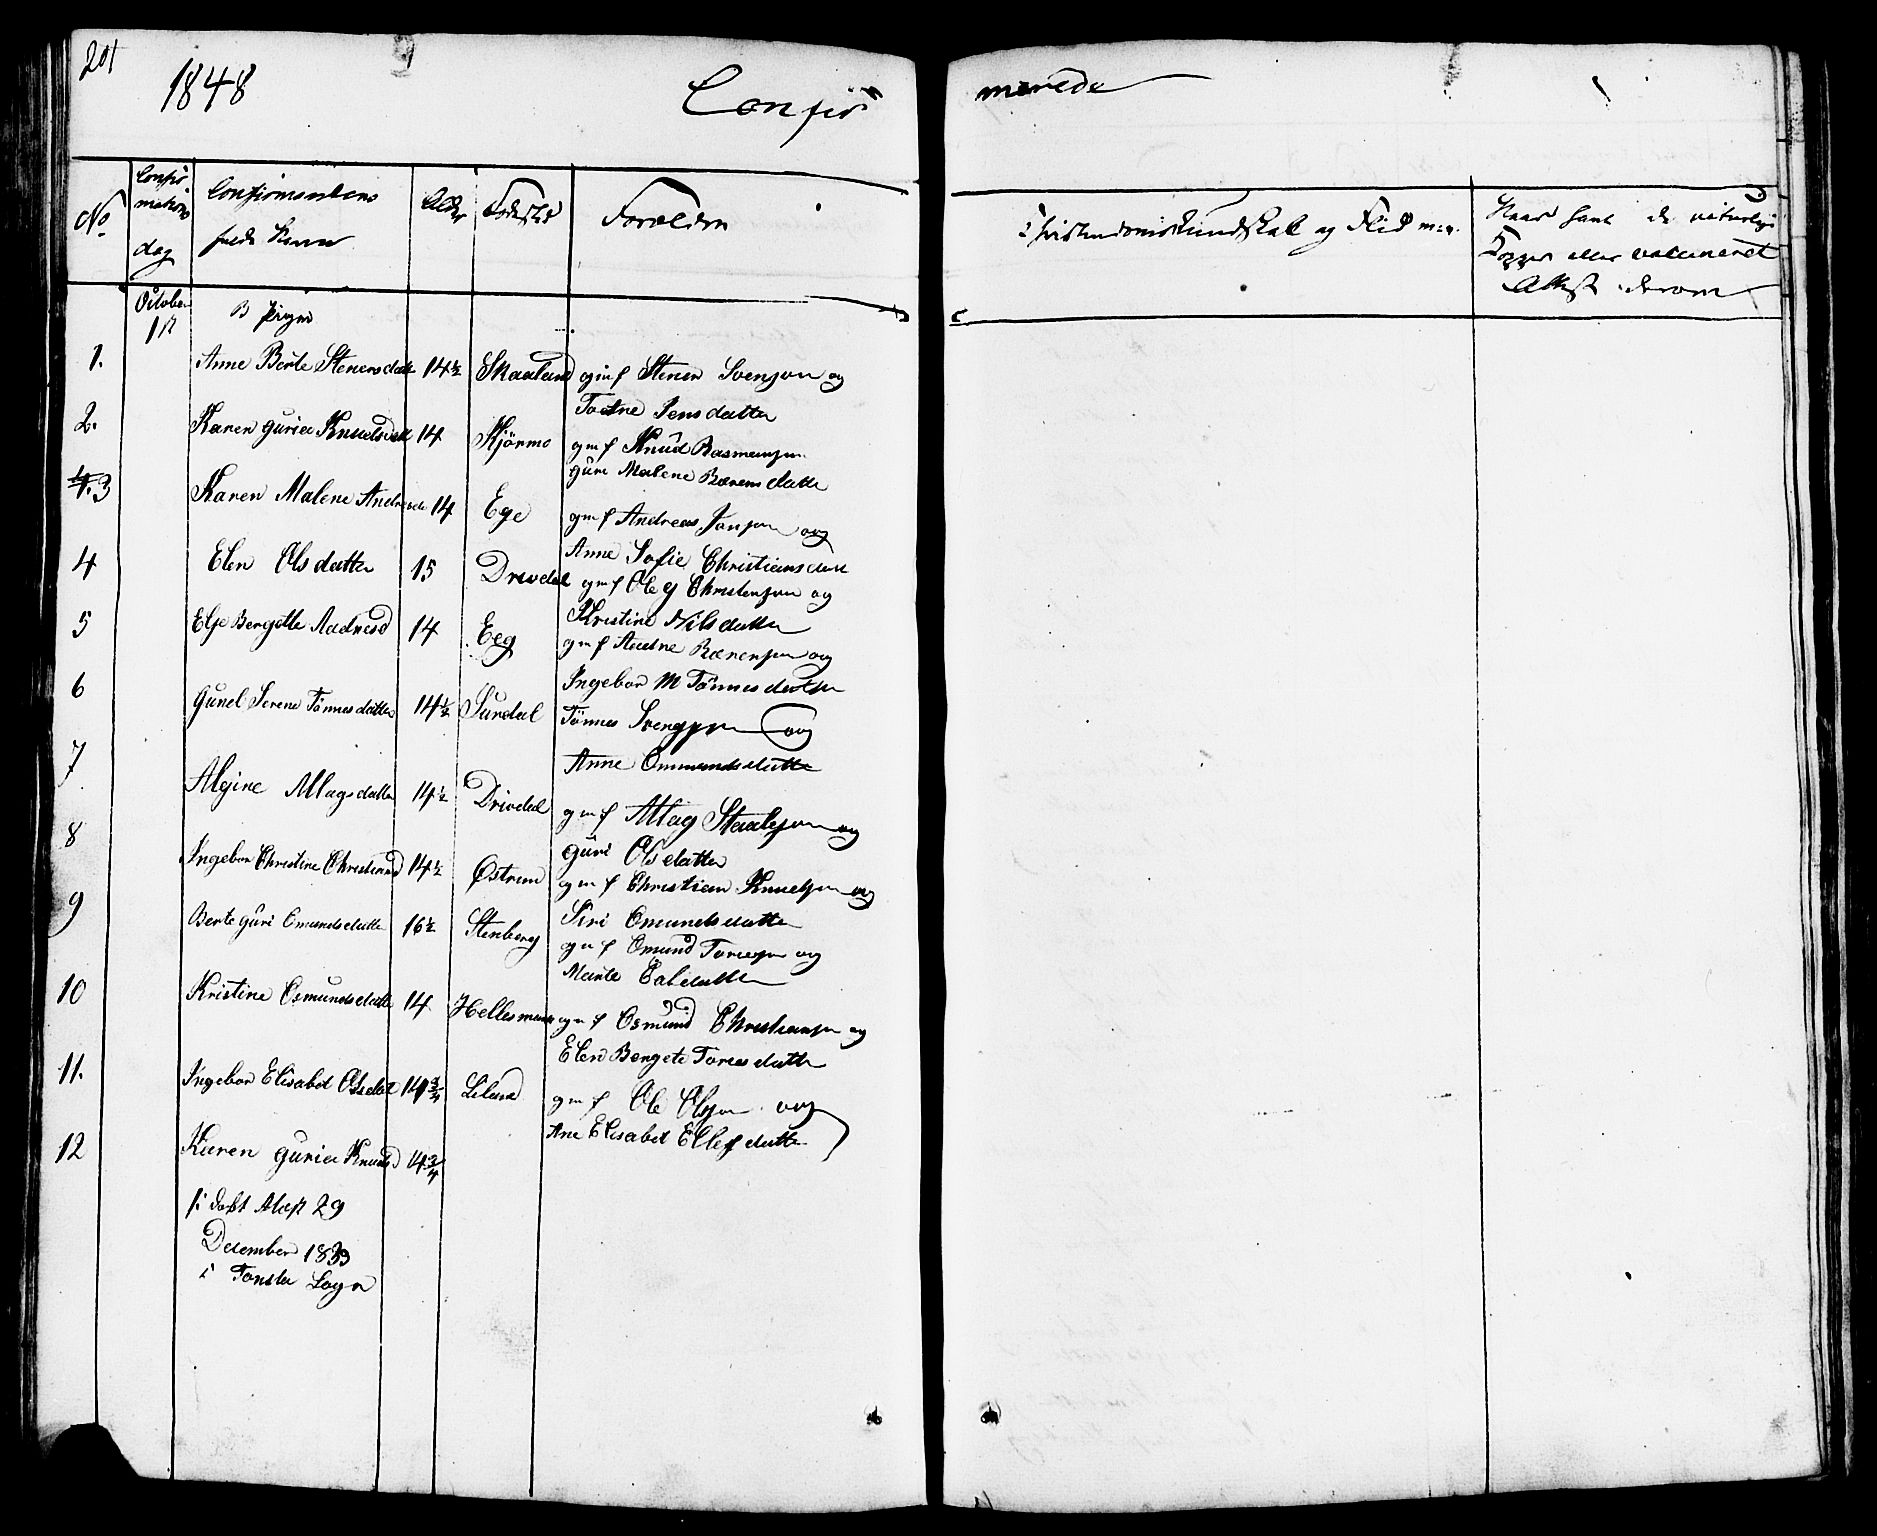 201
1848 Confir merede
No Confirmations dag Confirmantens fulde Navn Alder Fødested Forældre Christendomskundskab og Flid m.v. Naar havt de naturlige Kopper eller vaccineret Attest derom
October 1st B Piger
1. Anne Berte Stenersdatt 14½ Skaaland gmf Stener Svensen og
Tostne Jensdatter
2. Karen Guria Knudsdatt 14 Kjörmo gmf Knud Rasmusen
Guri Malene Bærensdatter
3 Karen Malene Andreasda 14 Ege gmf Andreas Jansen og
Anne Sofie Christiansdatt
4 Elen Olsdatter 15 Drivdal gmf Ole G Christensen og
Kristine Nilsdatter
5 Else Bergitte Aadnesd 14 Eeg gmf Aadne Bærensen og
Ingebor M Tönnesdatter
6 Gunel Serene Tönnesdatter 14½ Surdal Tönnes Svensen og
Anne Ommundsdatter
7 Algine Atlagsdatter 14½ Drivdal gmf Atlag Staalesen og
Guri Olsdatter
8 Ingebor Christine Christiansd 14½ Østrem gmf Christian Knudsen og
Siri Omundsdatter
9 Berte Guri Omundsdatter 16½ Stenberg gmf Omund Toresen og
Marte
10 Kristine Osmundsdatter 14 gmf Osmund Christiansen og
Elen Bergete Toresdatter
11. Ingebor Elisabet Olsdat 14¾ Liland gmf Ole Olsen og
Ane Elisabet Ellefsdatter
12 Karen Guria Knudsd 14¾
/: døbt 29
December 1833
i Sogn